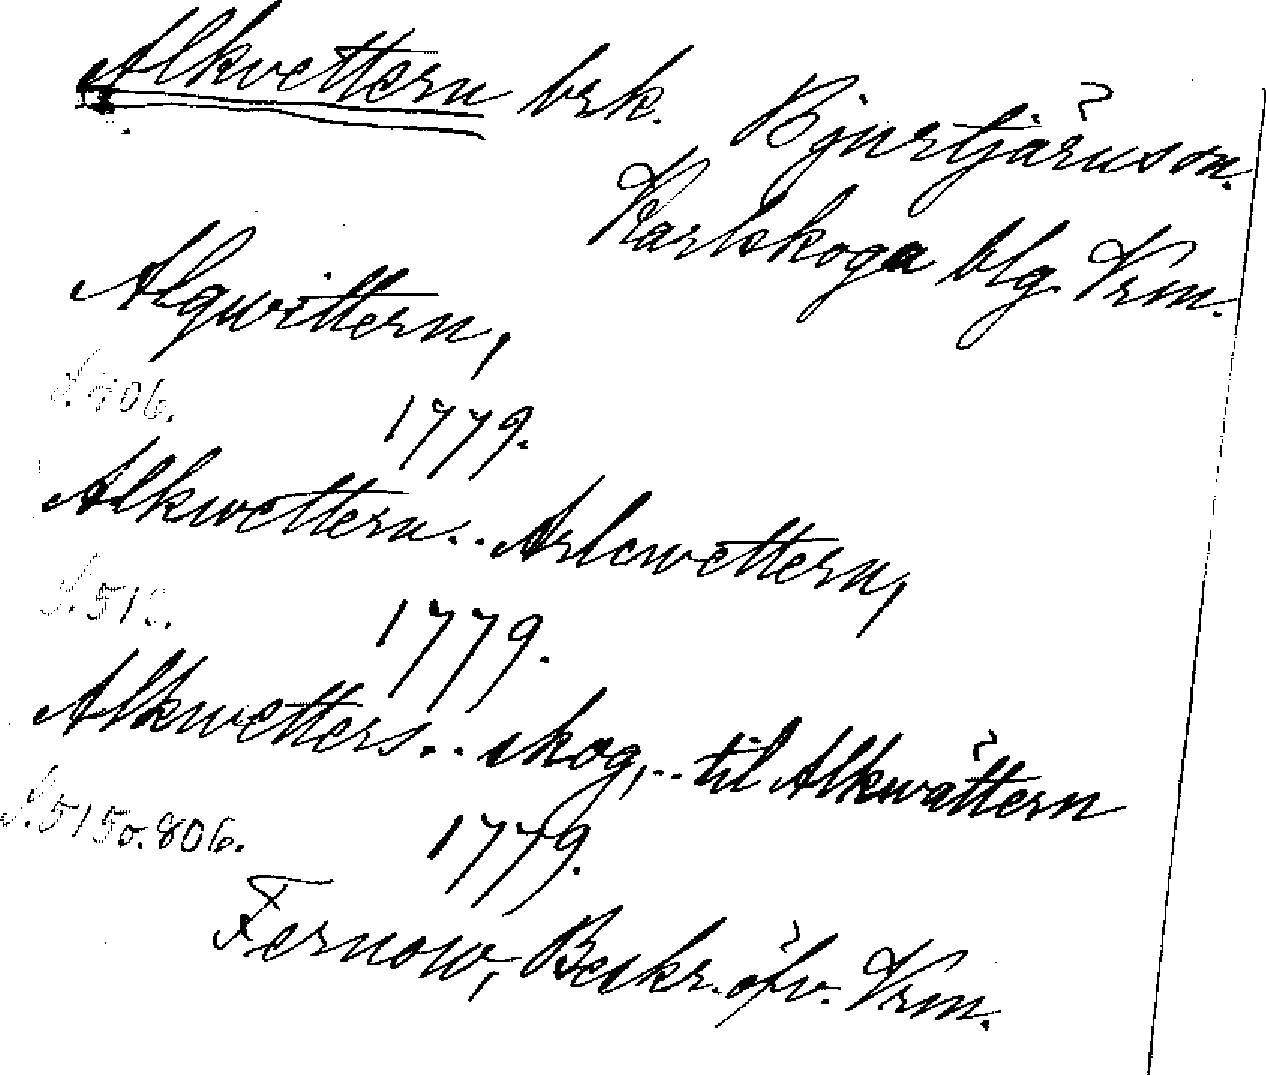 Alkvettern brk. Bjurtjärns sn.
Karlskoga blg Vrm.
Alqwittern,
S. 806. 1779.
Alkwettern.. Arlewettern,
S. 510. 1779.
Alkwetters.. skog,.. til Alkwättern
S. 515 o. 806. 1779.
Fernow, Beskr. öfv. Vrm.